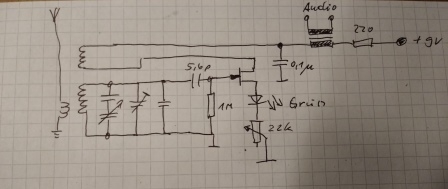 Audio
220
+9V
5,6p
0,1µ
1M
Grün
22k